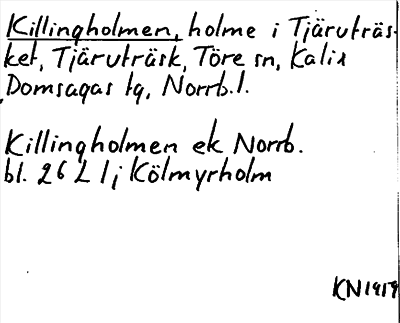 Killingholmen, holme i Tjäruträs-
ket, Tjäruträsk, Töre sn, Kalix
Domsagas tg, Norrb.l.
Killingholmen ek Norrb.
bl. 26 L 1; Kölmyrholm
KN1919